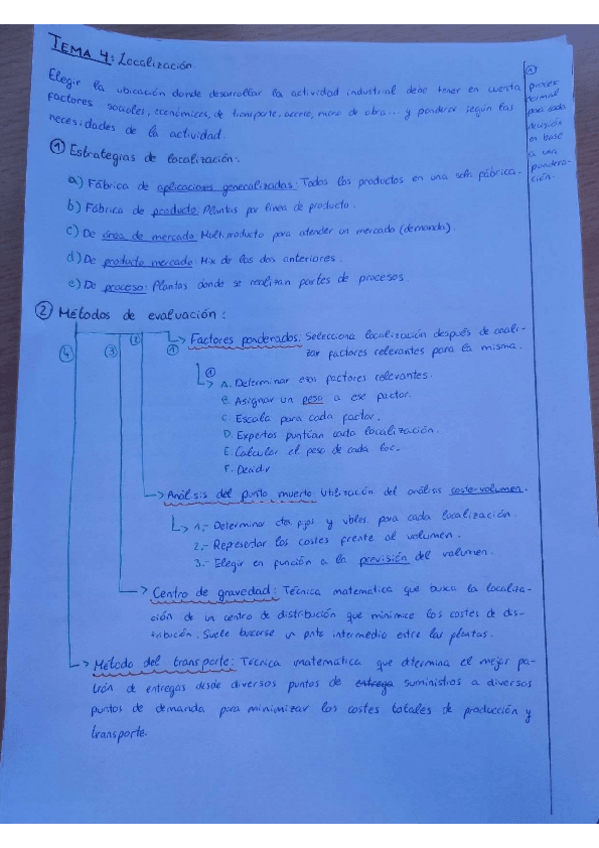 TEMA 4: Localización
Elegir la ubicación donde desarrollar la actividad industrial debe tener en cuenta
factores sociales, económicos, de transporte, acceso, mano de obra... y ponderar según las
necesidades de la actividad.
① Estrategias de localización:
a) Fábrica de aplicaciones generalizadas: Todos los productos en una sola fábrica.
b) Fábrica de producto: Plantas por linea de producto.
c) De área de mercado: Multiproducto para atender un mercado (demanda)
d) De producto mercado: Mix de las dos anteriores.
e) De proceso: Plantas donde se realizan partes de procesos.
② Métodos de evaluación:
① Factores ponderados: Selecciona localización después de anali-
zar factores relevantes para la misma.
① A. Determinar esos factores relevantes.
B. Asignar un peso a ese factor.
C. Escala para cada factor.
D. Expertos puntúan cada localización.
E. Calcular el peso de cada loc.
F. Decidir
② Análisis del punto muerto: Utilización del análisis coste-volumen.
1.- Determinar ctes fijos y vbles para cada localización.
2.- Representar los costes frente al volumen.
3.- Elegir en función a la previsión del volumen.
③ Centro de gravedad: Técnica matematica que busca la localiza-
ción de un centro de distribución que minimice los costes de dis-
tribución. Suele buscarse un pnto intermedio entre las plantas.
④ Método del transporte: Técnica matematica que dtermina el mejor pa-
trón de entregas desde diversos puntos de entrega suministros a diversos
puntos de demanda para minimizar los costes totales de producción y
transporte.
①
proceso
formal
para cada
decisión
en base
a una
pondera-
ción.